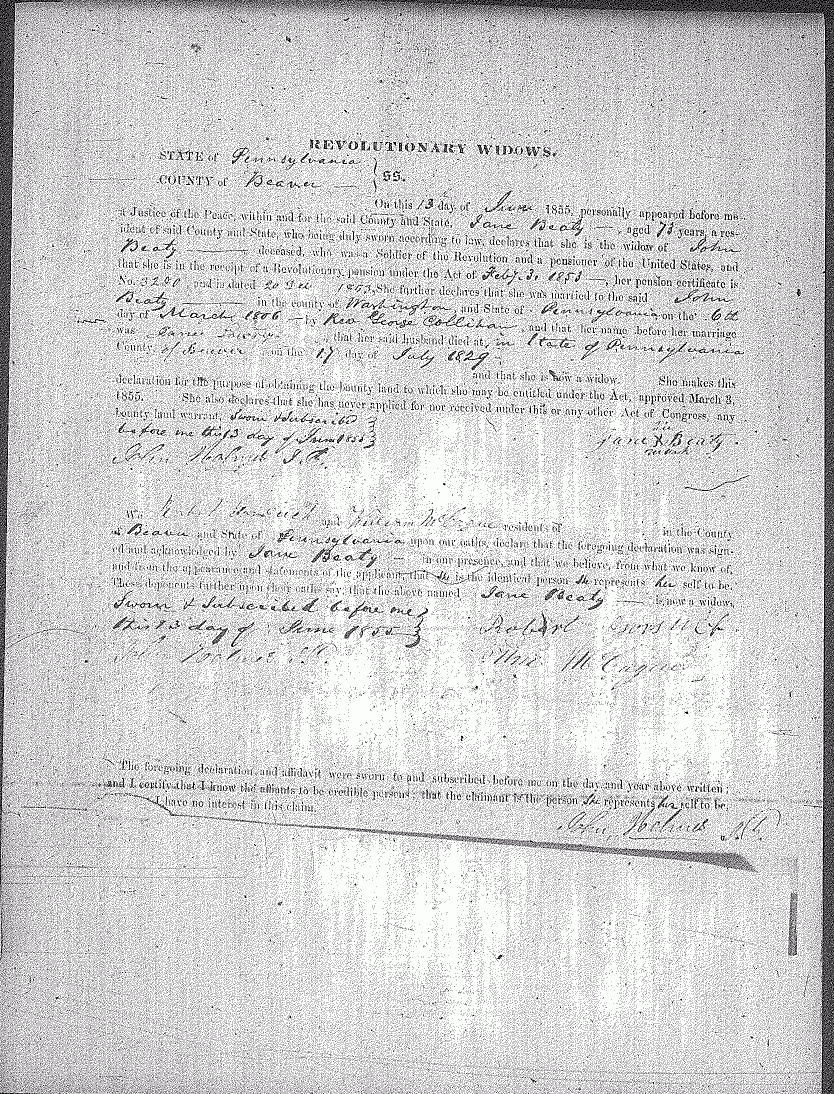 REVOLUTIONARY WIDOWS.
STATE of Pennsylvania
COUNTY of Beaver } SS.
On this 13 day of June 1855, personally appeared before me
a Justice of the Peace, within and for the said County and State, Jane Beaty —, aged 73 years, a res-
ident of said County and State, who being duly sworn according to law, declares that she is the widow of John
Beaty — deceased, who was a Soldier of the Revolution and a pensioner of the United States, and
that she is in the receipt of a Revolutionary pension under the Act of Feby. 3, 1853 —, her pension certificate is
No. 3290 and is dated 20 1853, She further declares that she was married to the said John
Beaty — in the county of Washington and State of Pennsylvania on the 6th
day of March 1806 — by Rev George Collihan, and that her name before her marriage
was Jane , that her said husband died at, in State of Pennsylvania
County of Beaver on the 17 day of July 1829
and that she is now a widow. She makes this
declaration for the purpose of obtaining the bounty land to which she may be entitled under the Act, approved March 3,
1855. She also declares that she has never applied for nor received under this or any other Act of Congress, any
bounty land warrant, Sworn & Subscribed
before me this 13 day of June 1855
Jane X Beaty
mark
John J.P.
We and William McCague residents of in the County
of Beaver and State of Pennsylvania upon our oaths, declare that the foregoing declaration was sign-
ed and acknowledged by Jane Beaty — in our presence, and that we believe, from what we know of,
and from the appearance and statements of the applicant, that she is the identical person she represents her self to be.
These deponents further upon their oaths say, that the above named Jane Beaty — is now a widow,
Sworn & Subscribed before me
this 13 day of June 1855
Robert
McCague
The foregoing declaration and affidavit were sworn to and subscribed before me on the day and year above written;
and I certify that I know the affiants to be credible persons; that the claimant is the person she represents her self to be,
I have no interest in this claim.
John J.P.